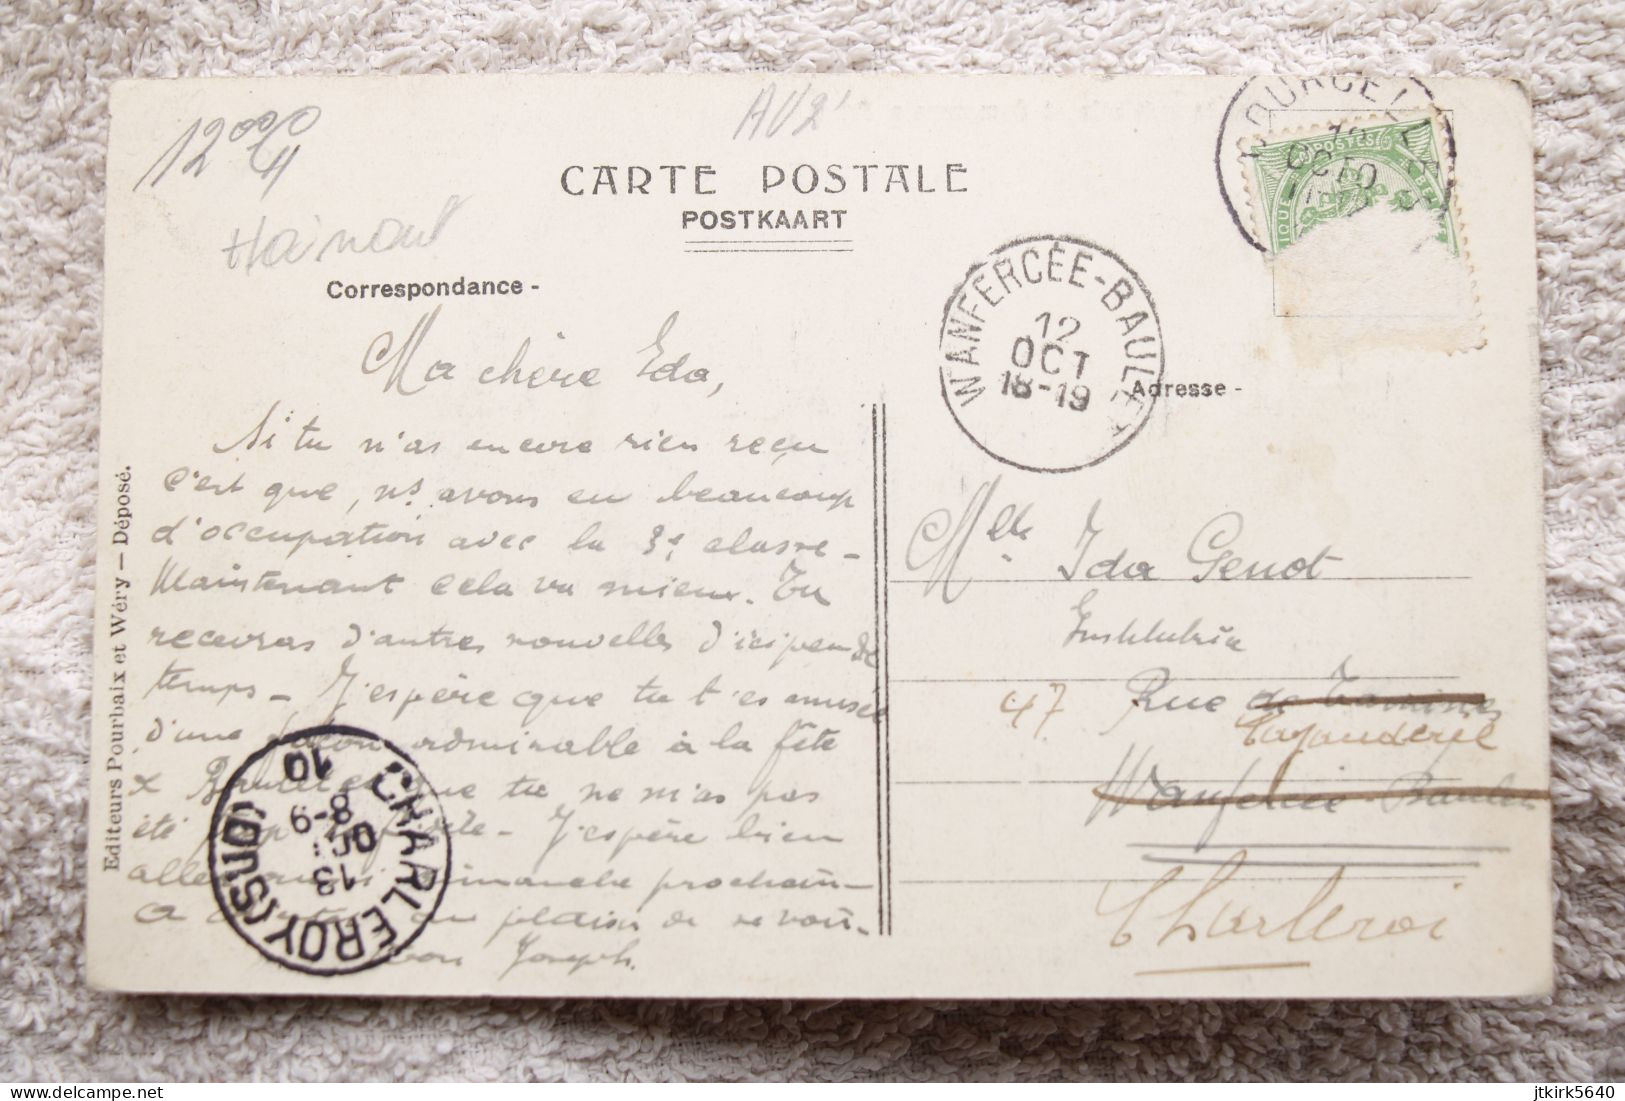 12
AV2'
Hainaut
CARTE POSTALE
POSTKAART
Correspondance -
Adresse -
COURCELLES
12
OCT
WANFERCÉE-BAULET
12
OCT
18-19
Ma chère Ida,
Si tu n'as encore rien reçu
c'est que, ns. avons eu beaucoup
d'occupation avec la 3e classe -
Maintenant cela va mieux. Tu
recevras d'autres nouvelles d'ici peu de
temps - J'espère que tu t'es amusée
d'une façon admirable à la fête
x que tu ne m'as pas
été - J'espère bien
aller dimanche prochain -
a plaisir de te voir.
Joseph.
Mlle Ida Genot
Institutrice
47 Rue de Tamines
Wanfercée-Baulet
Charleroi
CHARLEROY (SUD)
13
OCT
8-9
10
Editeurs Pourbaix et Wéry — Déposé.
jtkirk5640